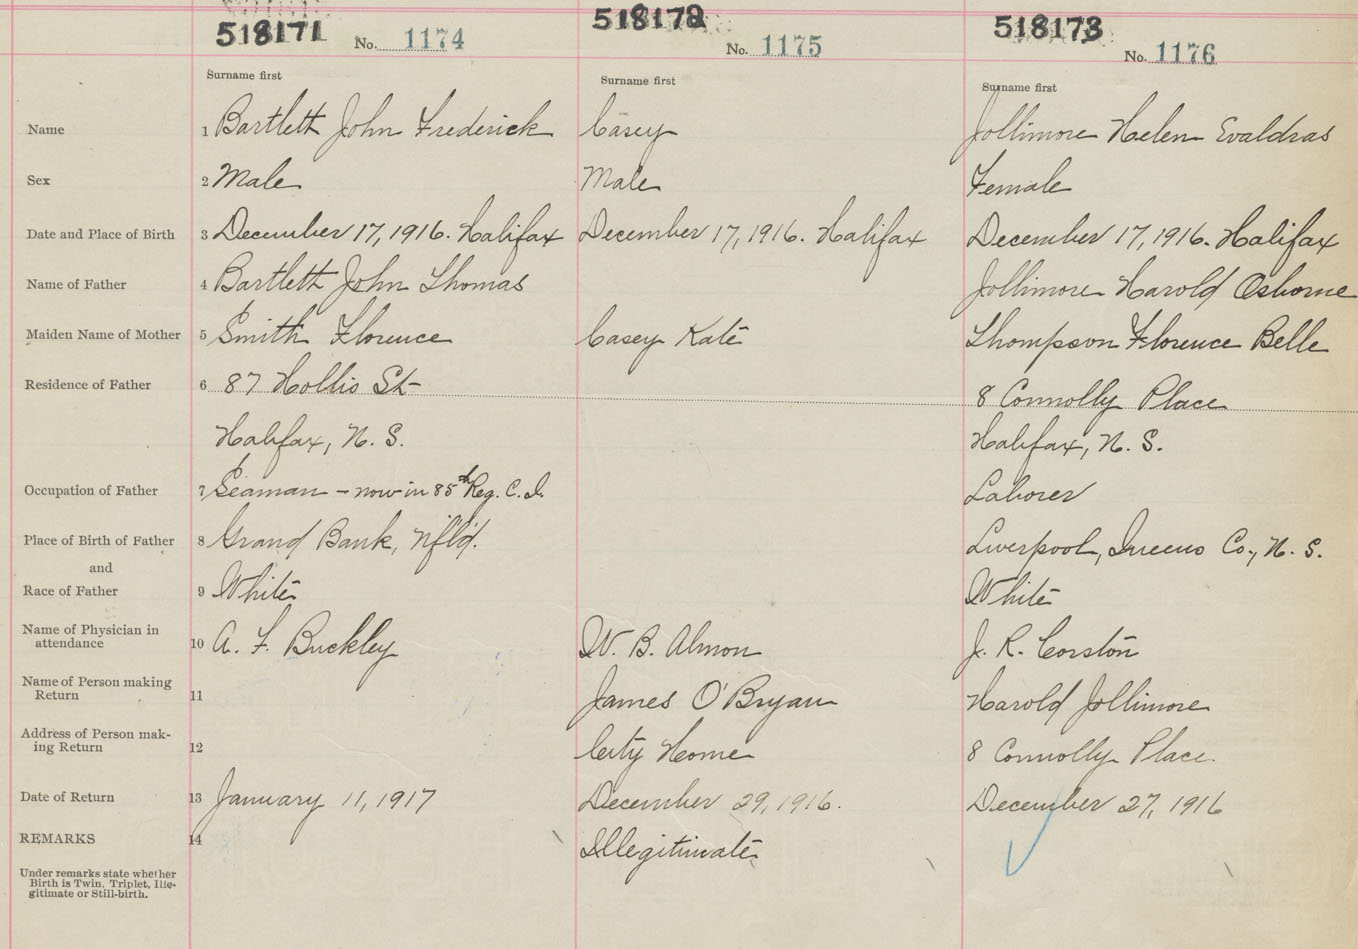 518171 No. 1174 518172 No. 1175 518173 No. 1176
Surname first Surname first Surname first
Name 1 Bartlett John Frederick Casey Jollimore Helen Evaldras
Sex 2 Male Male Female
Date and Place of Birth 3 December 17, 1916. Halifax December 17, 1916. Halifax December 17, 1916. Halifax
Name of Father 4 Bartlett John Thomas Jollimore Harold Osborne
Maiden Name of Mother 5 Smith Florence Casey Kate Thompson Florence Belle
Residence of Father 6 87 Hollis St 8 Connolly Place
Halifax, N. S. Halifax, N. S.
Occupation of Father 7 Seaman - now in 85th Reg. C. I. Laborer
Place of Birth of Father 8 Grand Bank, Nfld. Liverpool, Queens Co., N. S.
and
Race of Father 9 White White
Name of Physician in
attendance 10 A. F. Buckley W. B. Almon J. R. Corston
Name of Person making
Return 11 James O'Bryan Harold Jollimore
Address of Person mak-
ing Return 12 City Home 8 Connolly Place.
Date of Return 13 January 11, 1917 December 29, 1916. December 27, 1916
REMARKS 14 Illegitimate
Under remarks state whether
Birth is Twin, Triplet, Ille-
gitimate or Still-birth.